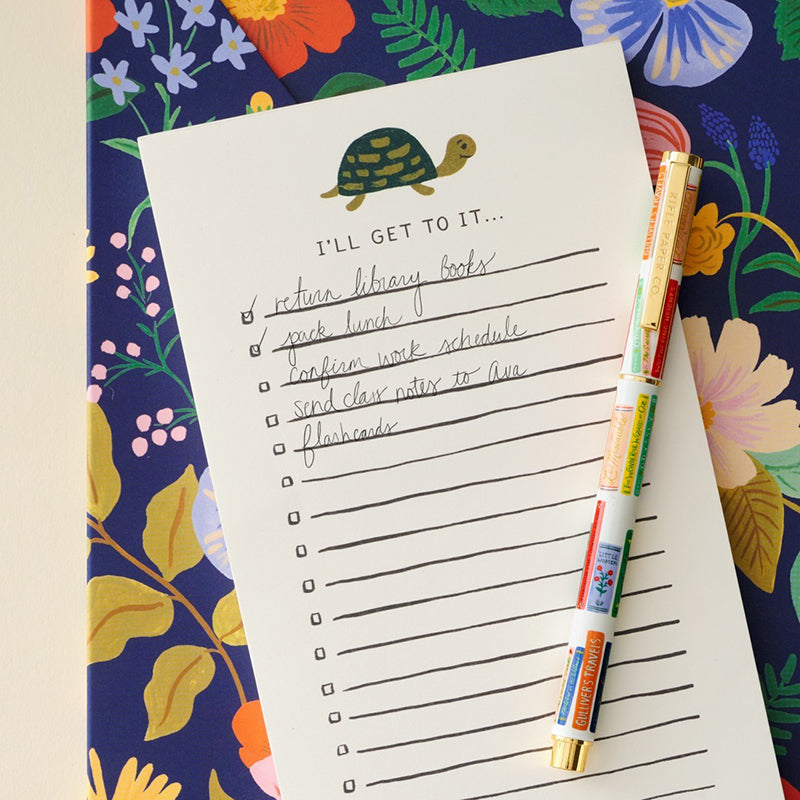 I'LL GET TO IT...
return library books
pack lunch
confirm work schedule
send class notes to Ava
flashcards
RIFLE PAPER CO.
GULLIVER'S TRAVELS
LITTLE WOMEN
GULLIVER'S TRAVELS